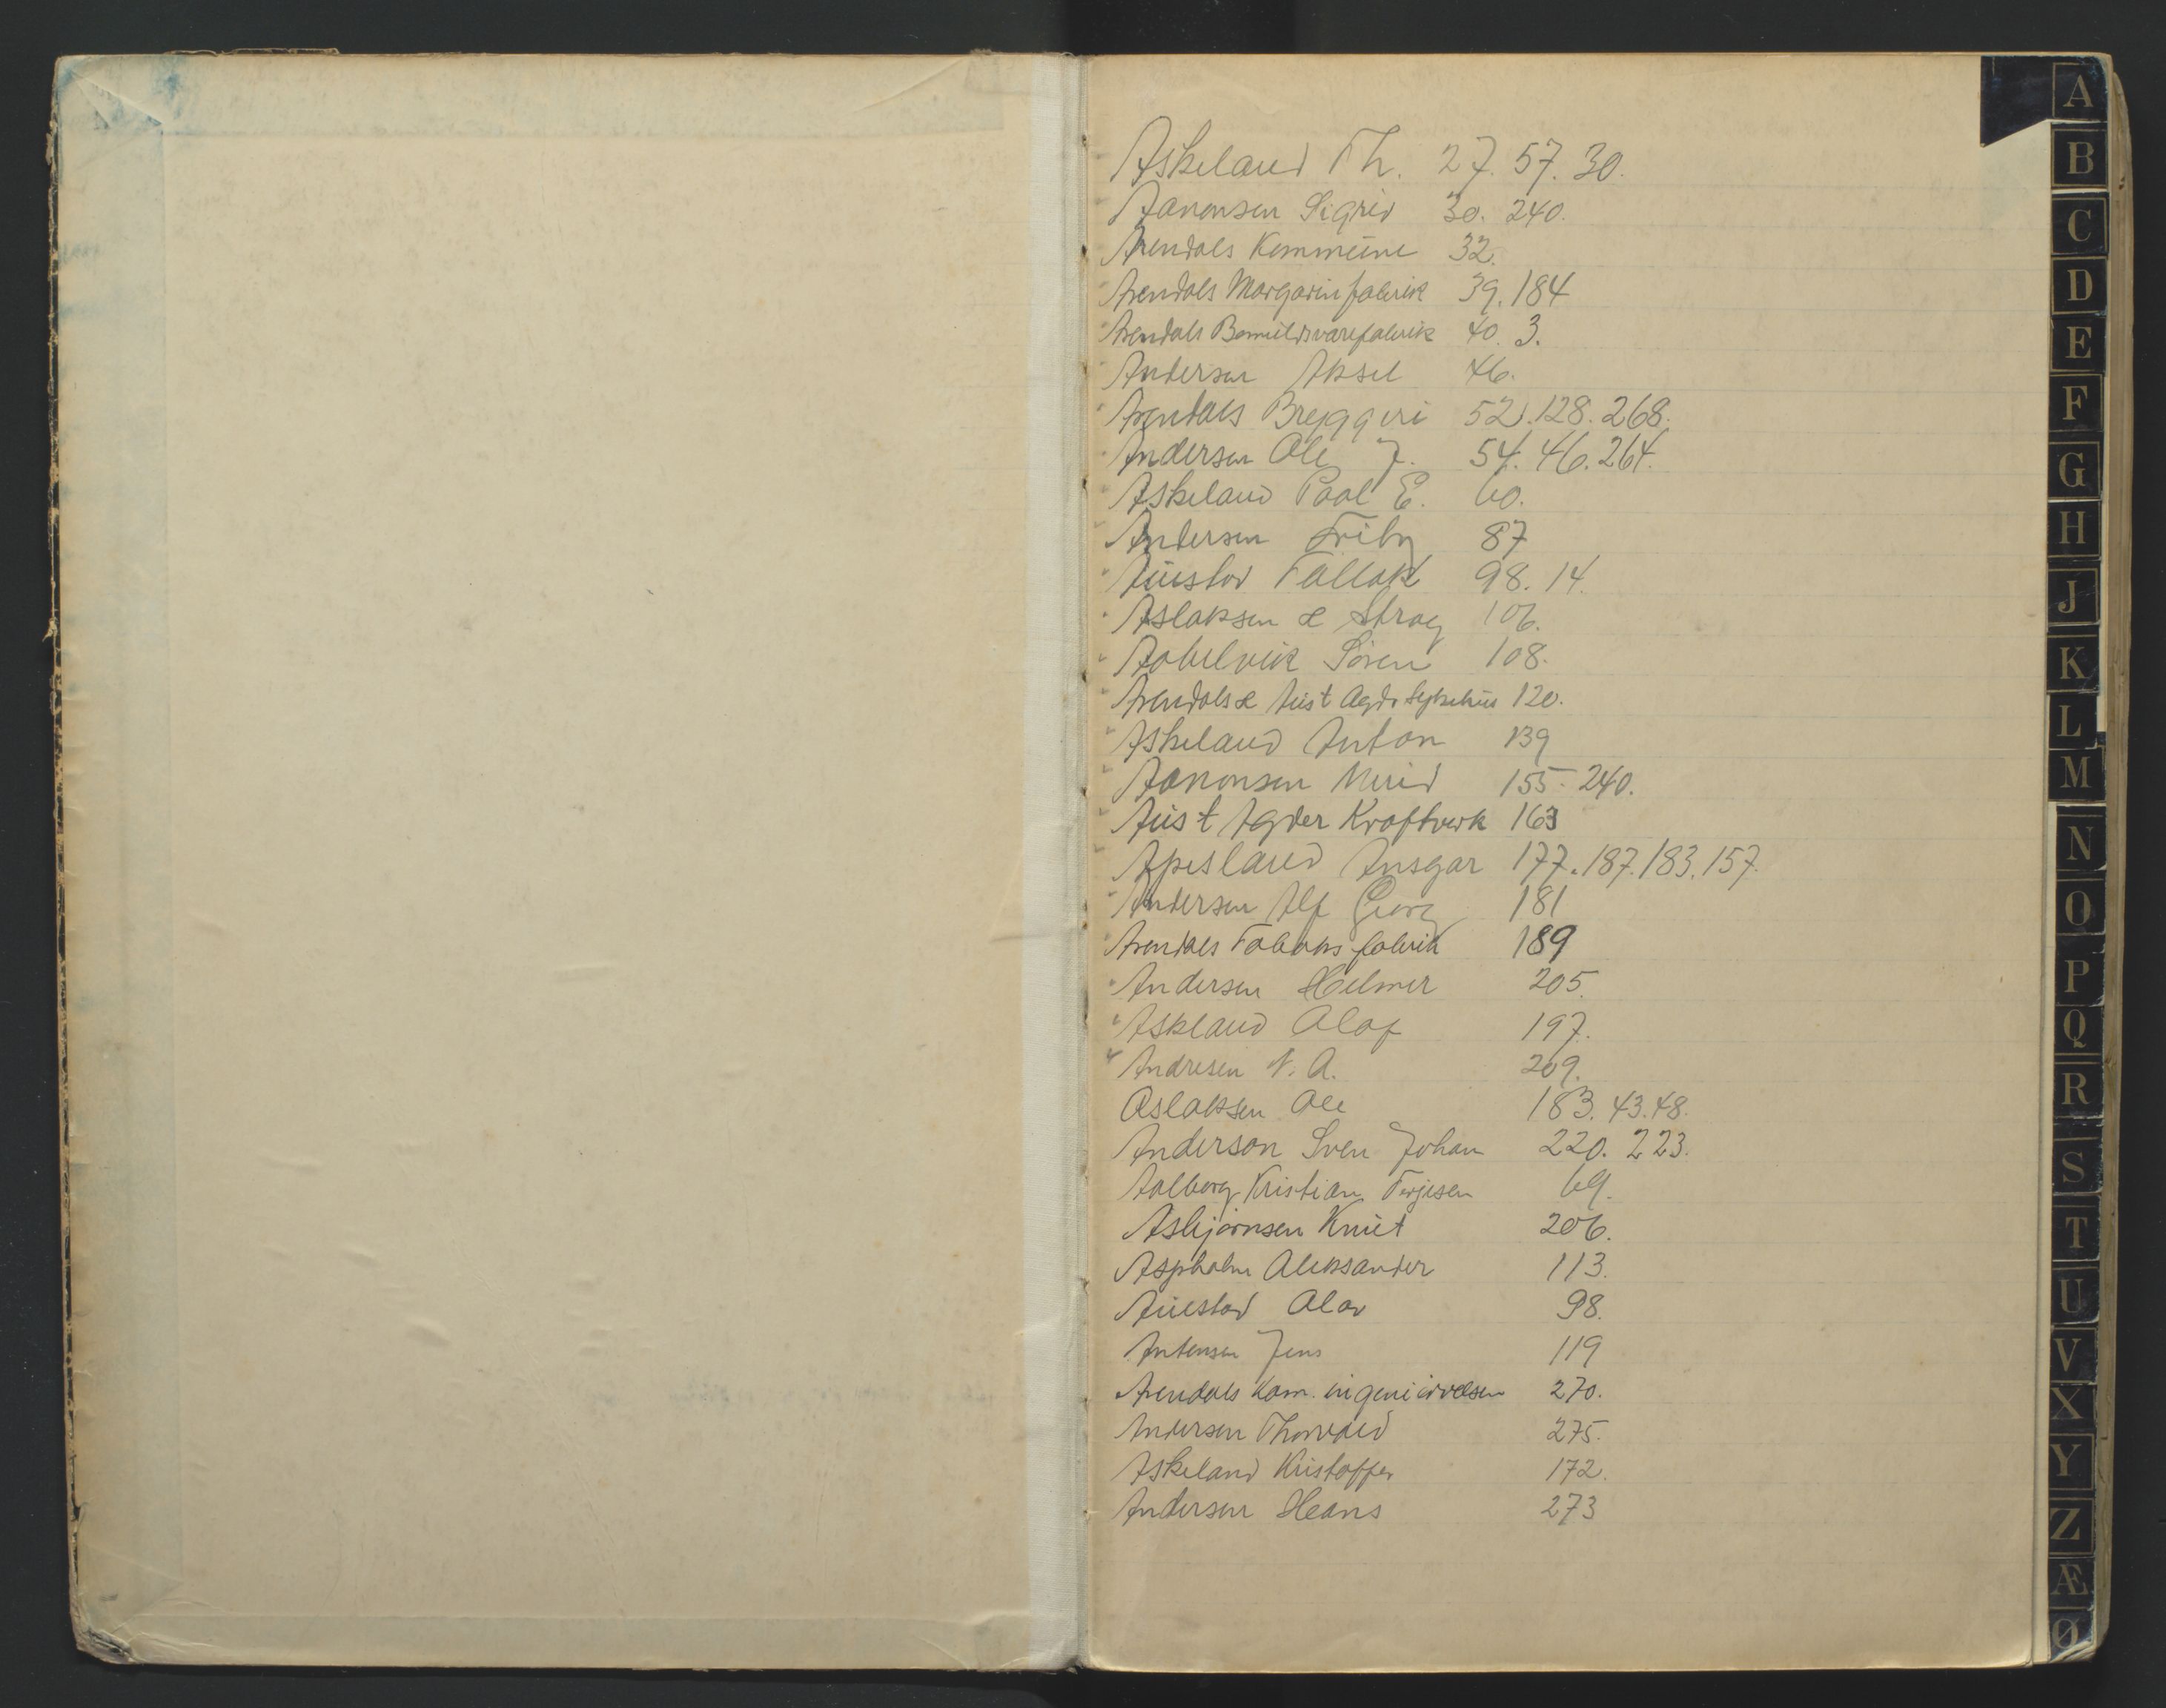 Askeland Th. 27. 57. 30.
Aanonsen Sigrid 30. 240.
Arendals Kommune 32.
Arendals Margarinfabrik 39. 184
Arendals Bomuldsvarefabrik 40. 3.
Andersen Aksel 46.
Arendals Bryggeri 52. 128. 268.
Andersen Ole J. 54. 46. 264.
Askeland Paal E. 60.
Andersen 87
Austad Tallak 98. 14.
Aslaksen & Stray 106.
Aabelvik Søren 108.
Arendals & Aust Agds Sykehus 120.
Askeland Anton 139
Aanonsen 155. 240.
Aust Agder Kraftverk 163
Apesland Ansgar 177. 187. 183. 157.
Andersen Alf Georg 181
Arendals Tobaks fabrik 189
Andersen Helmer 205.
Askland Olaf 197.
Andresen N. A. 209.
Aslaksen Ole 183. 43. 48.
Anderson Sven Johan 220. 223.
Aalborg Kristian Terjesen 69.
Asbjørnsen Knut 206.
Aspholm Aleksander 113.
Austad Olav 98.
Antensen Jens 119
Arendals kom. ingeniørvesen 270.
Andersen Thorvald 275.
Askeland Kristoffer 172.
Andersen Hans 273
A
B
C
D
E
F
G
H
J
K
L
M
N
O
P
Q
R
S
T
U
V
X
Y
Z
Æ
Ø